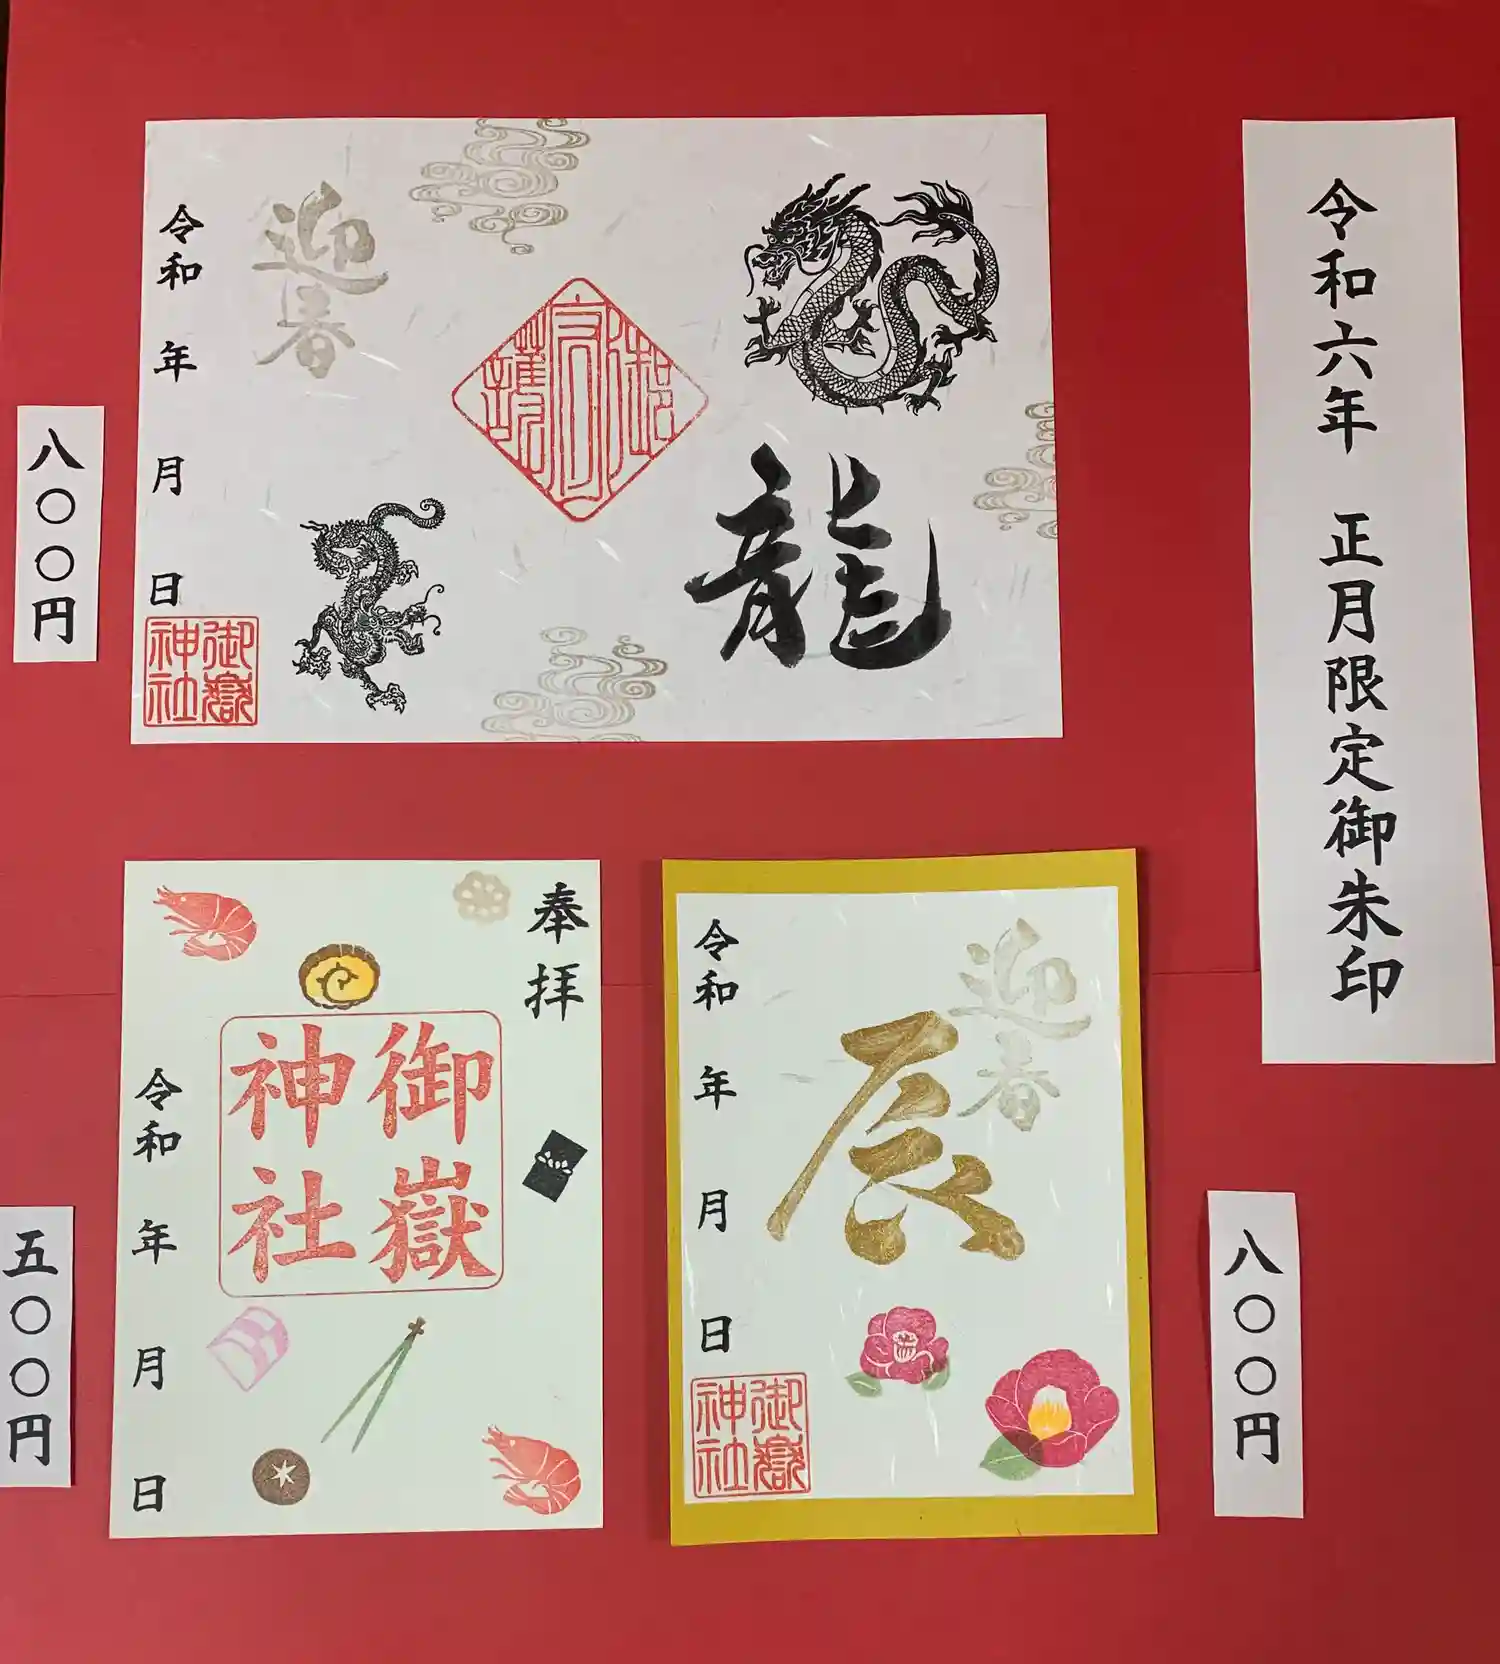 令和六年 正月限定御朱印
龍
御守護
迎春
令和 年 月 日
御嶽神社
八〇〇円
迎春
辰
令和 年 月 日
御嶽神社
八〇〇円
奉拝
御嶽神社
令和 年 月 日
五〇〇円